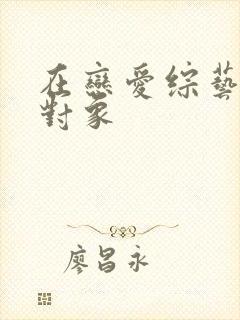 在戀愛綜藝
對象
廖昌永